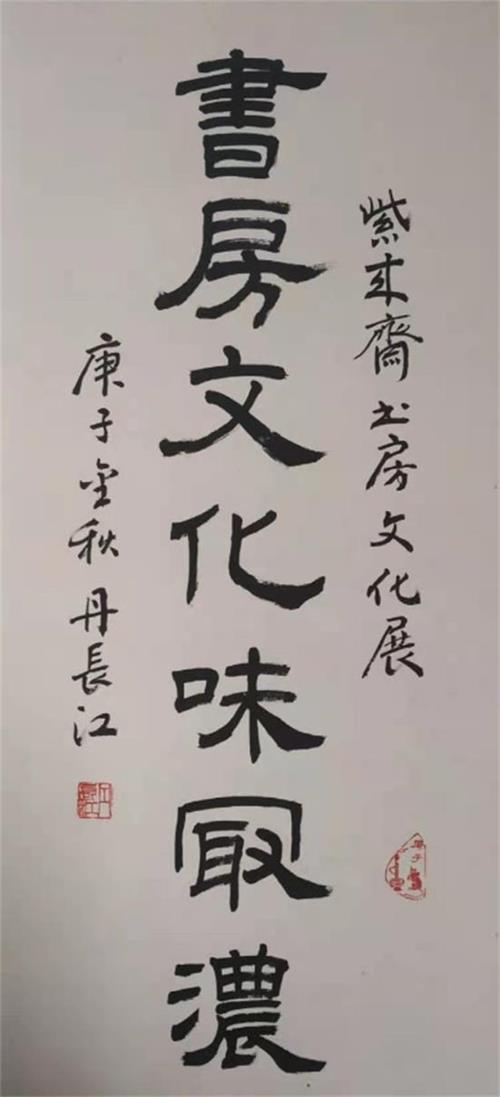 紫来齋书房文化展
書房文化味冣濃
庚子金秋丹長江